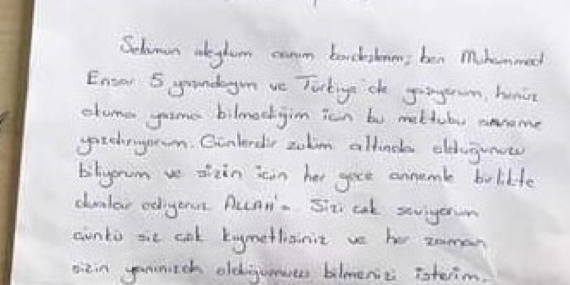 Selamun aleykum canım kardeşlerim; ben Muhammed
Ensar 5 yaşındayım ve Türkiye'de yaşıyorum, henüz
okuma yazma bilmediğim için bu mektubu anneme
yazdırıyorum. Günlerdir zulüm altında olduğunuzu
biliyorum ve sizin için her gece annemle birlikte
dualar ediyoruz ALLAH'a. Sizi çok seviyorum
çünkü siz çok kıymetlisiniz ve her zaman
sizin yanınızda olduğumuzu bilmenizi isterim.